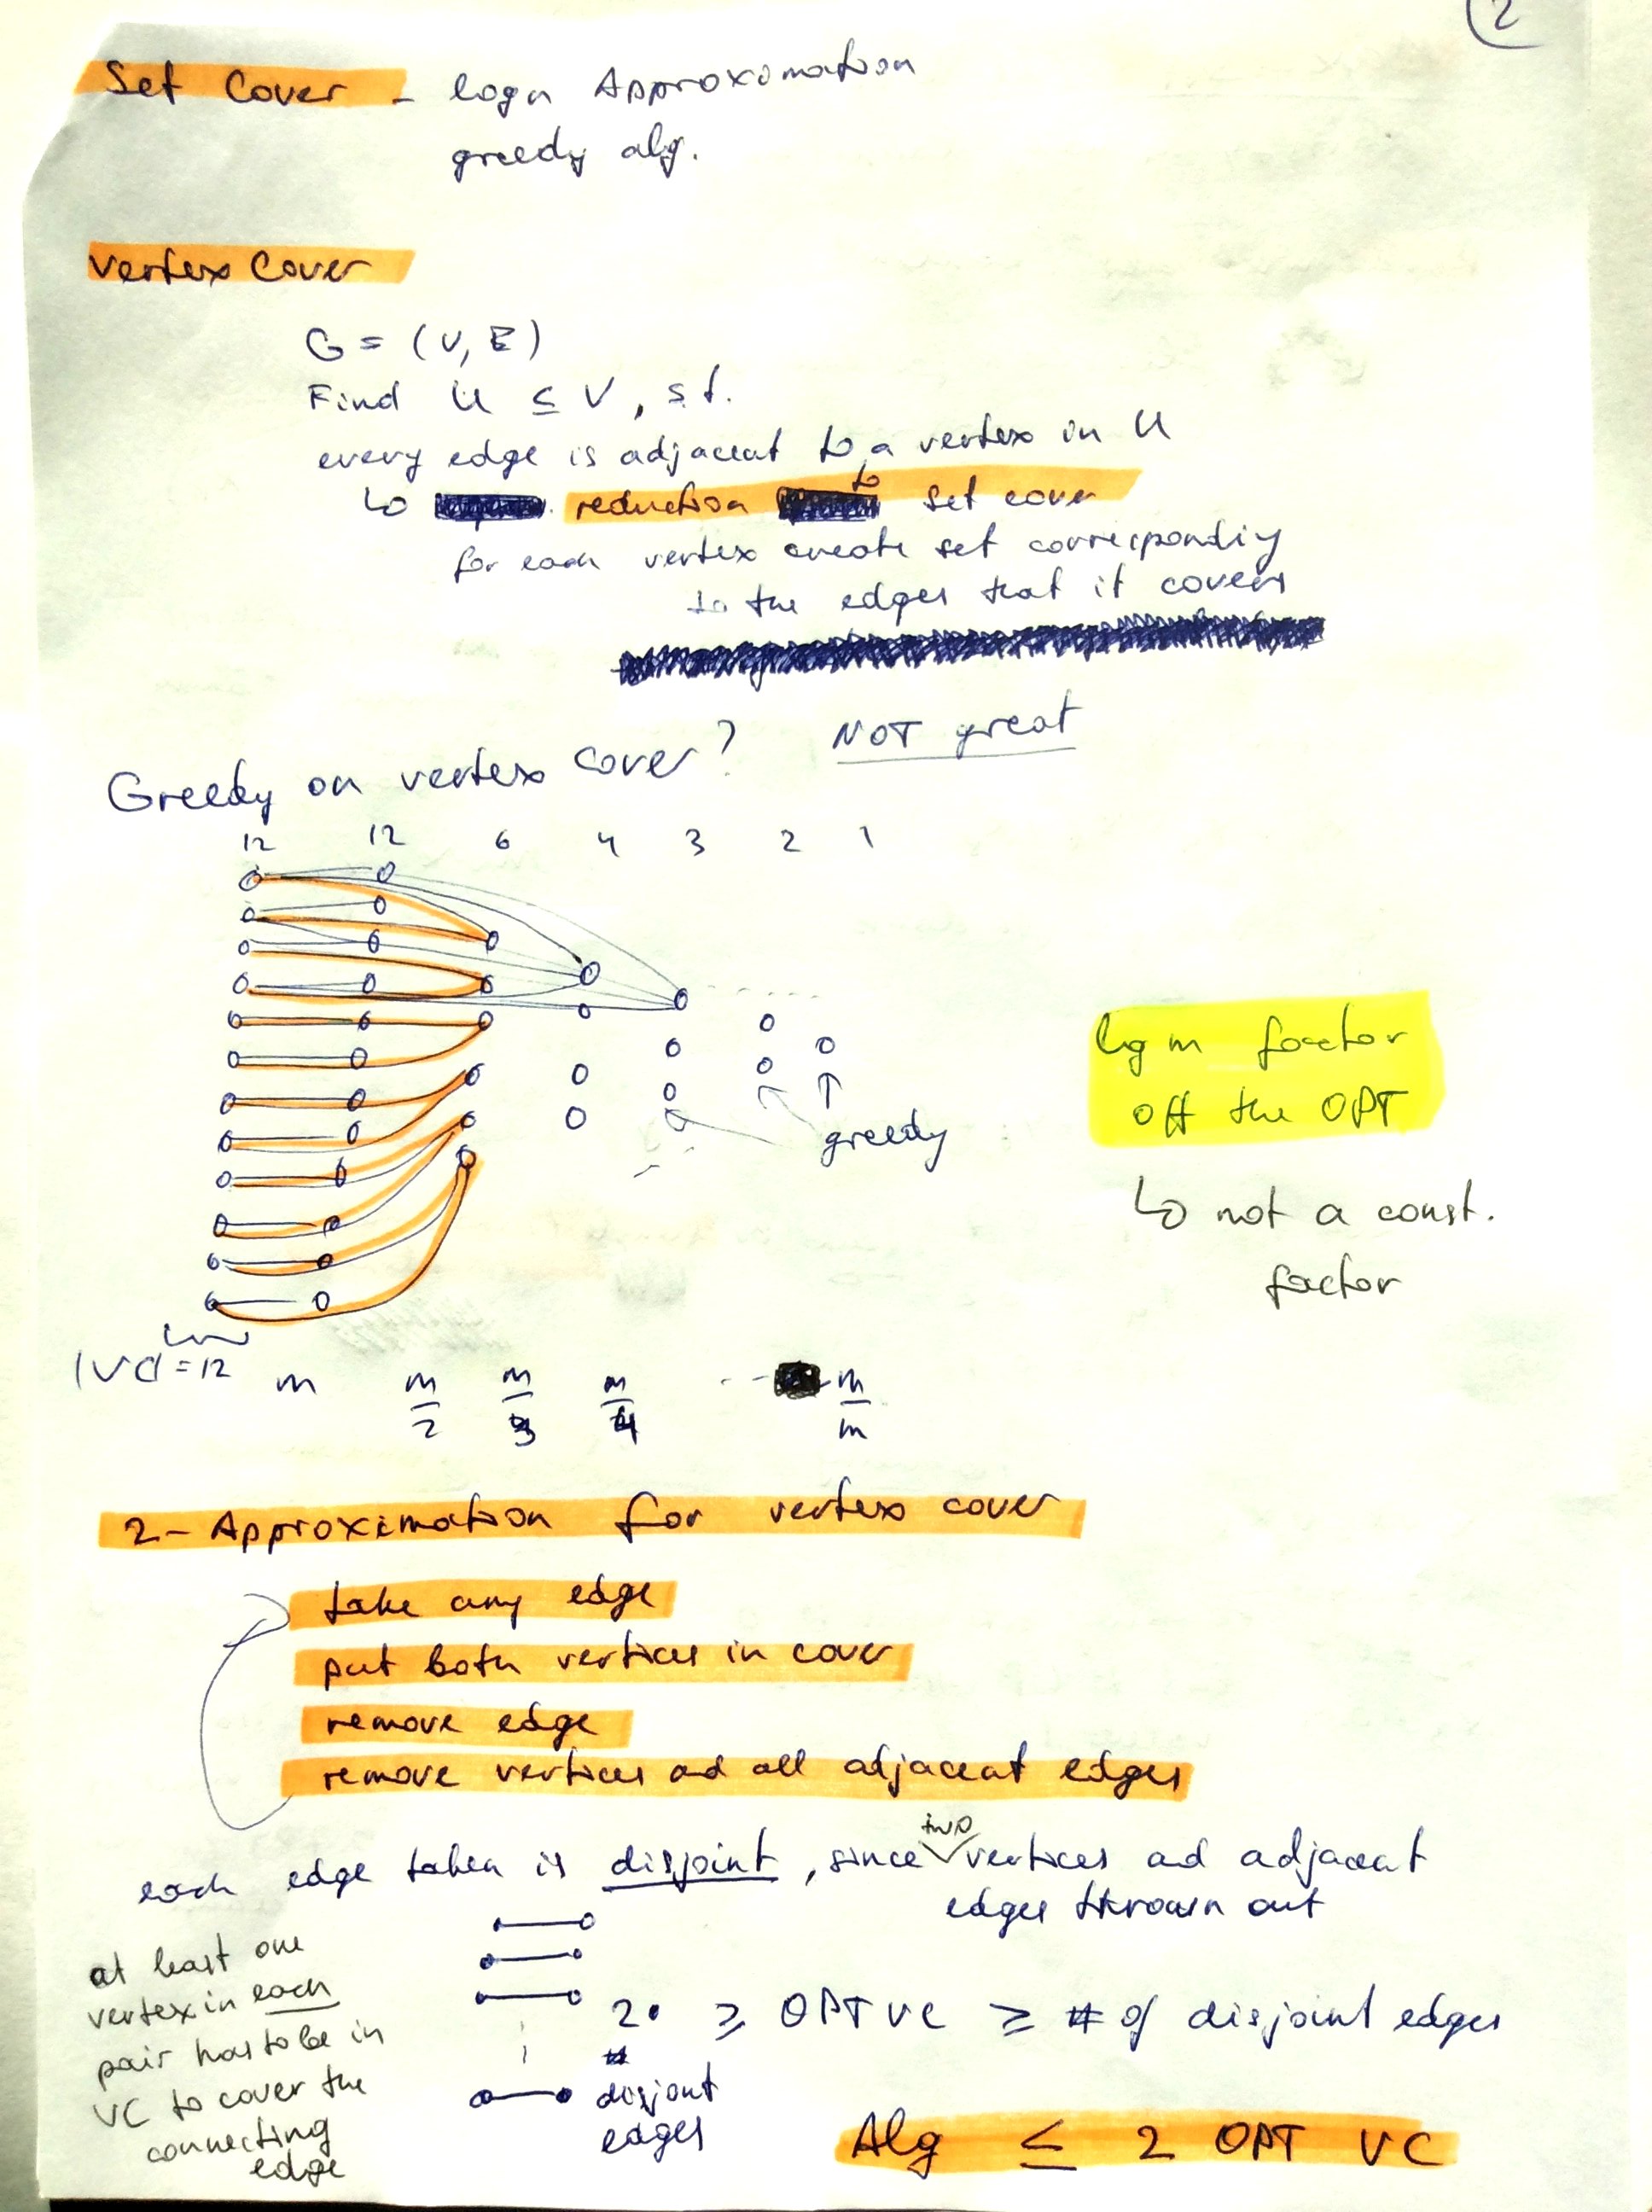 2
Set Cover - log n Approximation
greedy alg.
Vertex Cover
G = (V, E)
Find U ⊆ V, s.t.
every edge is adjacent to a vertex in U
↳ reduction to set cover
for each vertex create set correspondig
to the edges that it covers
Greedy on vertex cover? NOT great
12 12 6 4 3 2 1
greedy
log m factor
off the OPT
↳ not a const.
factor
|VC| = 12
m m/2 m/3 m/4 -- m/m
2-Approximation for vertex cover
take any edge
put both vertices in cover
remove edge
remove vertices ad all adjacent edges
each edge taken is disjoint, since two vertices ad adjacent
edges thrown out
at least one
vertex in each
pair has to be in
VC to cover the
connecting
edge
2 • # disjoint edges ≥ OPT VC ≥ # of disjoint edges
Alg ≤ 2 OPT VC